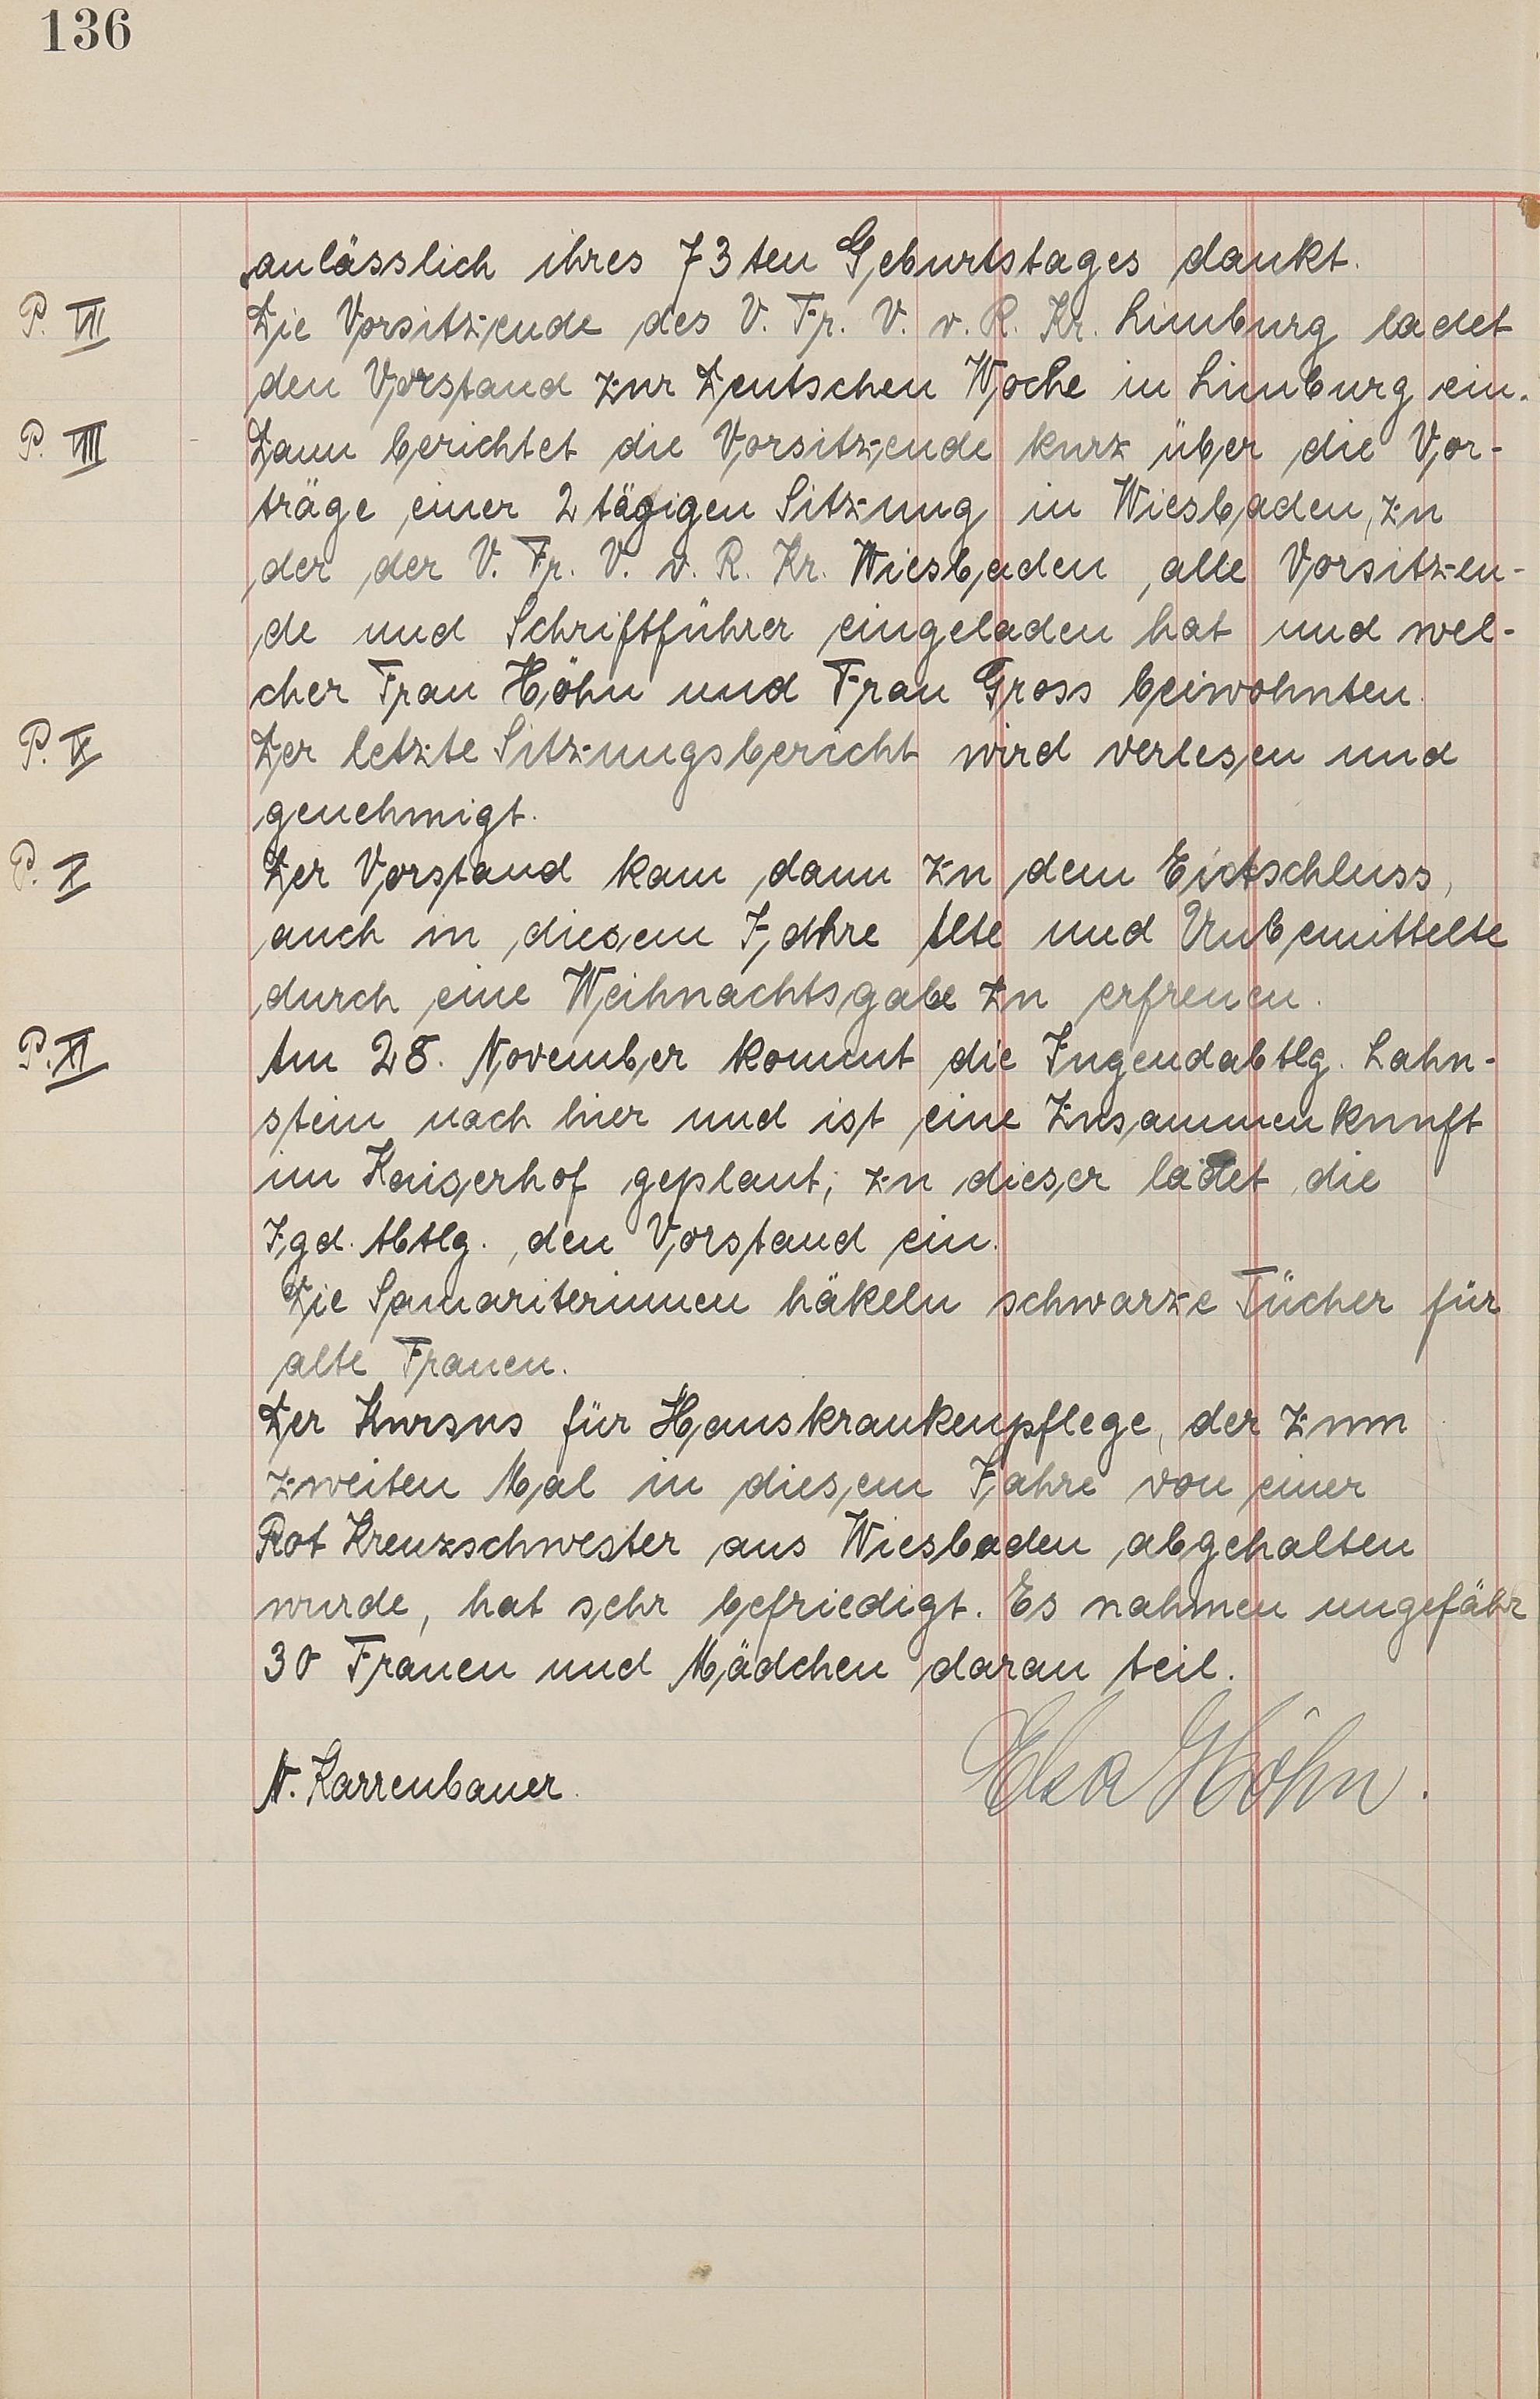 136
anlässlich ihres 73ten Geburtstages dankt.
P. VII Die Vorsitzende des V. Fr. V. v. R. Kr. Limburg ladet
den Vorstand zur Deutschen Woche in Limburg ein.
P. VIII Dann berichtet die Vorsitzende kurz über die Vor-
träge einer 2tägigen Sitzung in Wiesbaden, zu
der der V. Fr. V. v. R. Kr. Wiesbaden, alle Vorsitzen-
de und Schriftführer eingeladen hat und wel-
cher Frau Höhn und Frau Gross beiwohnten.
P. IX Der letzte Sitzungsbericht wird verlesen und
genehmigt.
P. X Der Vorstand kam dann zu dem Entschluss,
auch in diesem Jahre Alte und Unbemittelte
durch eine Weihnachtsgabe zu erfreuen.
P. XI Am 28. November kommt die Jugendabtlg. Lahn-
stein nach hier und ist eine Zusammenkunft
im Kaiserhof geplant; zu dieser ladet die
Jgd. Abtlg. den Vorstand ein.
Die Samariterinnen häkeln schwarze Tücher für
alte Frauen.
Der Kursus für Hauskrankenpflege, der zum
zweiten Mal in diesem Jahre von einer
Rot Kreuzschwester aus Wiesbaden abgehalten
wurde, hat sehr befriedigt. Es nahmen ungefähr
30 Frauen und Mädchen daran teil.
N. Karrenbauer. Elsa Höhn.